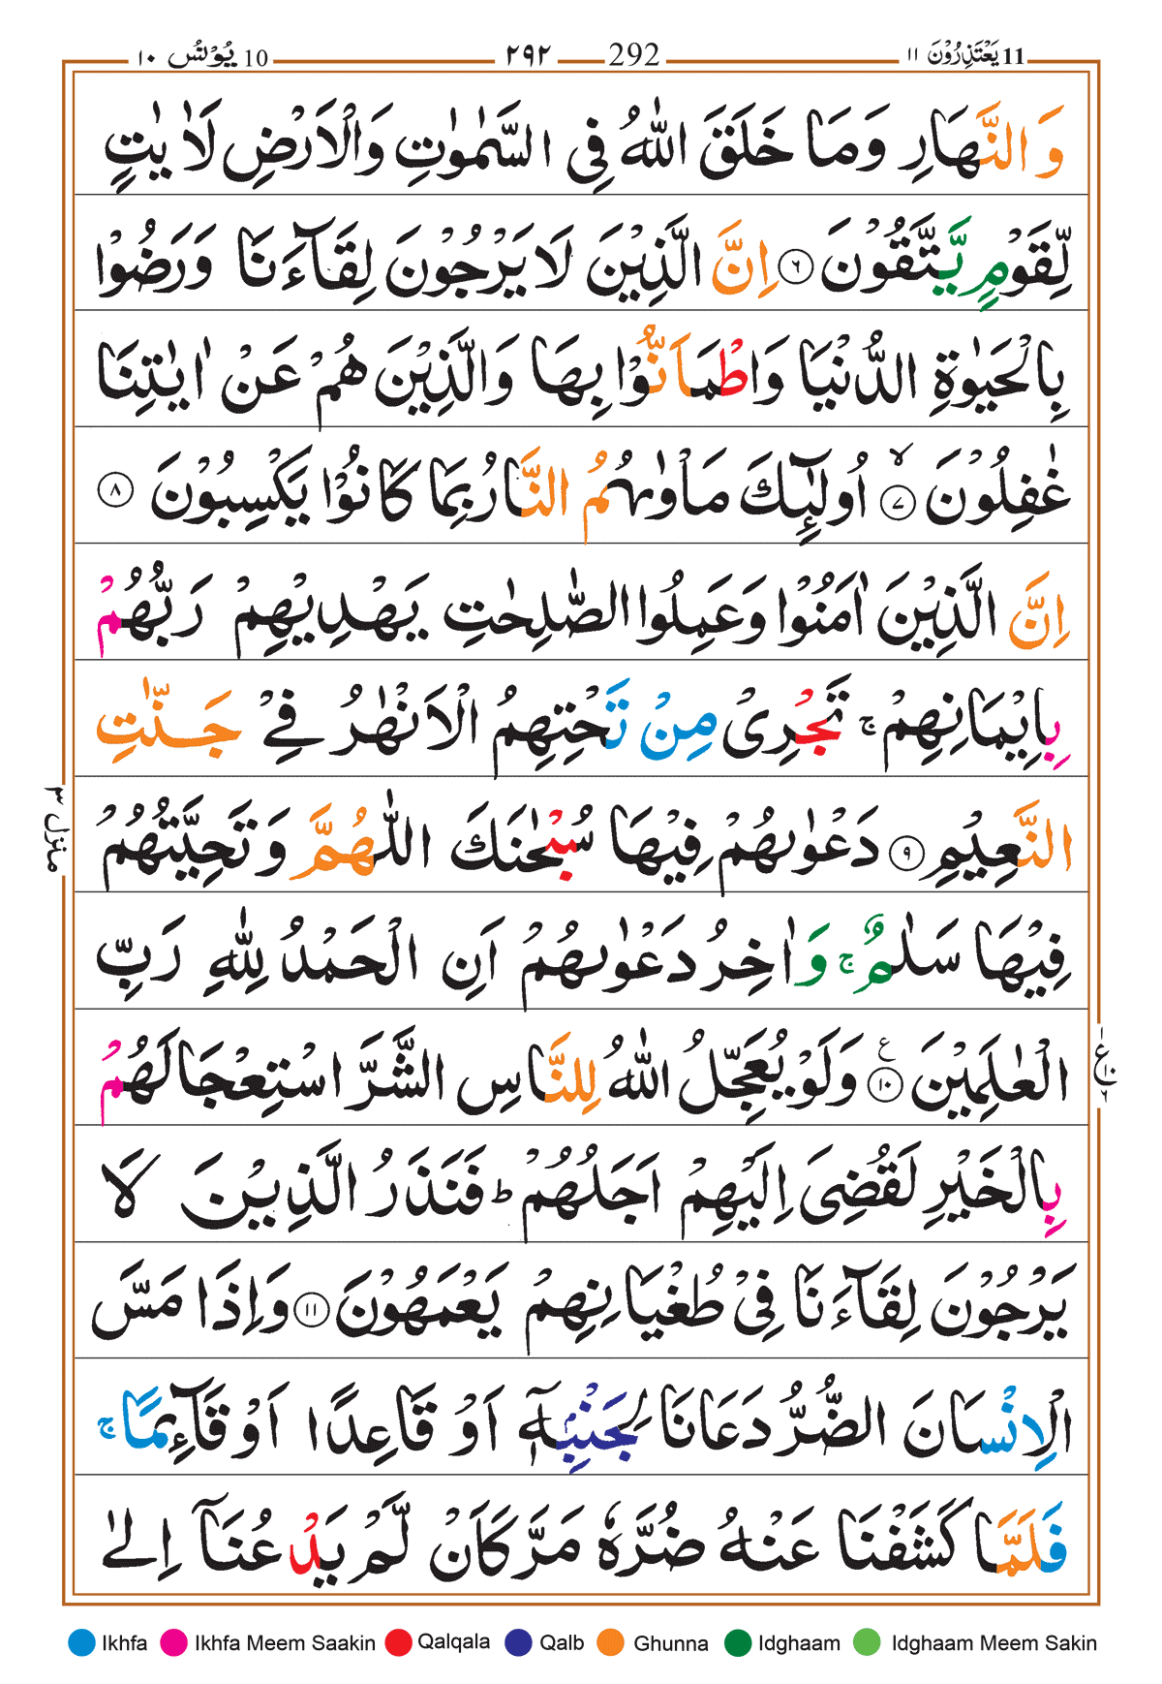 11 يَعْتَذِرُوْنَ ١١ 292 ٢٩٢ 10 يُوْنُسُ ١٠
وَ النَّهَارِ وَمَا خَلَقَ اللّٰهُ فِي السَّمٰوٰتِ وَالْاَرْضِ لَاٰيٰتٍ
لِّقَوْمٍ يَّتَّقُوْنَ ٦ اِنَّ الَّذِيْنَ لَا يَرْجُوْنَ لِقَآءَنَا وَرَضُوْا
بِالْحَيٰوةِ الدُّنْيَا وَاطْمَاَنُّوْا بِهَا وَالَّذِيْنَ هُمْ عَنْ اٰيٰتِنَا
غٰفِلُوْنَ ۙ ٧ اُولٰٓئِكَ مَاْوٰىهُمُ النَّارُ بِمَا كَانُوْا يَكْسِبُوْنَ ٨
اِنَّ الَّذِيْنَ اٰمَنُوْا وَعَمِلُوا الصّٰلِحٰتِ يَهْدِيْهِمْ رَبُّهُمْ
بِاِيْمَانِهِمْ ۚ تَجْرِيْ مِنْ تَحْتِهِمُ الْاَنْهٰرُ فِيْ جَنّٰتِ
النَّعِيْمِ ٩ دَعْوٰىهُمْ فِيْهَا سُبْحٰنَكَ اللّٰهُمَّ وَتَحِيَّتُهُمْ
فِيْهَا سَلٰمٌ ۚ وَاٰخِرُ دَعْوٰىهُمْ اَنِ الْحَمْدُ لِلّٰهِ رَبِّ
الْعٰلَمِيْنَ ١٠ ع وَلَوْ يُعَجِّلُ اللّٰهُ لِلنَّاسِ الشَّرَّ اسْتِعْجَالَهُمْ
بِالْخَيْرِ لَقُضِيَ اِلَيْهِمْ اَجَلُهُمْ ؕ فَنَذَرُ الَّذِيْنَ لَا
يَرْجُوْنَ لِقَآءَنَا فِيْ طُغْيَانِهِمْ يَعْمَهُوْنَ ١١ وَاِذَا مَسَّ
الْاِنْسَانَ الضُّرُّ دَعَانَا لِجَنْۢبِهٖٓ اَوْ قَاعِدًا اَوْ قَآئِمًا ۚ
فَلَمَّا كَشَفْنَا عَنْهُ ضُرَّهٗ مَرَّ كَاَنْ لَّمْ يَدْعُنَآ اِلٰى
منزل ٣
١ ع ١٠ ٢
Ikhfa Ikhfa Meem Saakin Qalqala Qalb Ghunna Idghaam Idghaam Meem Sakin